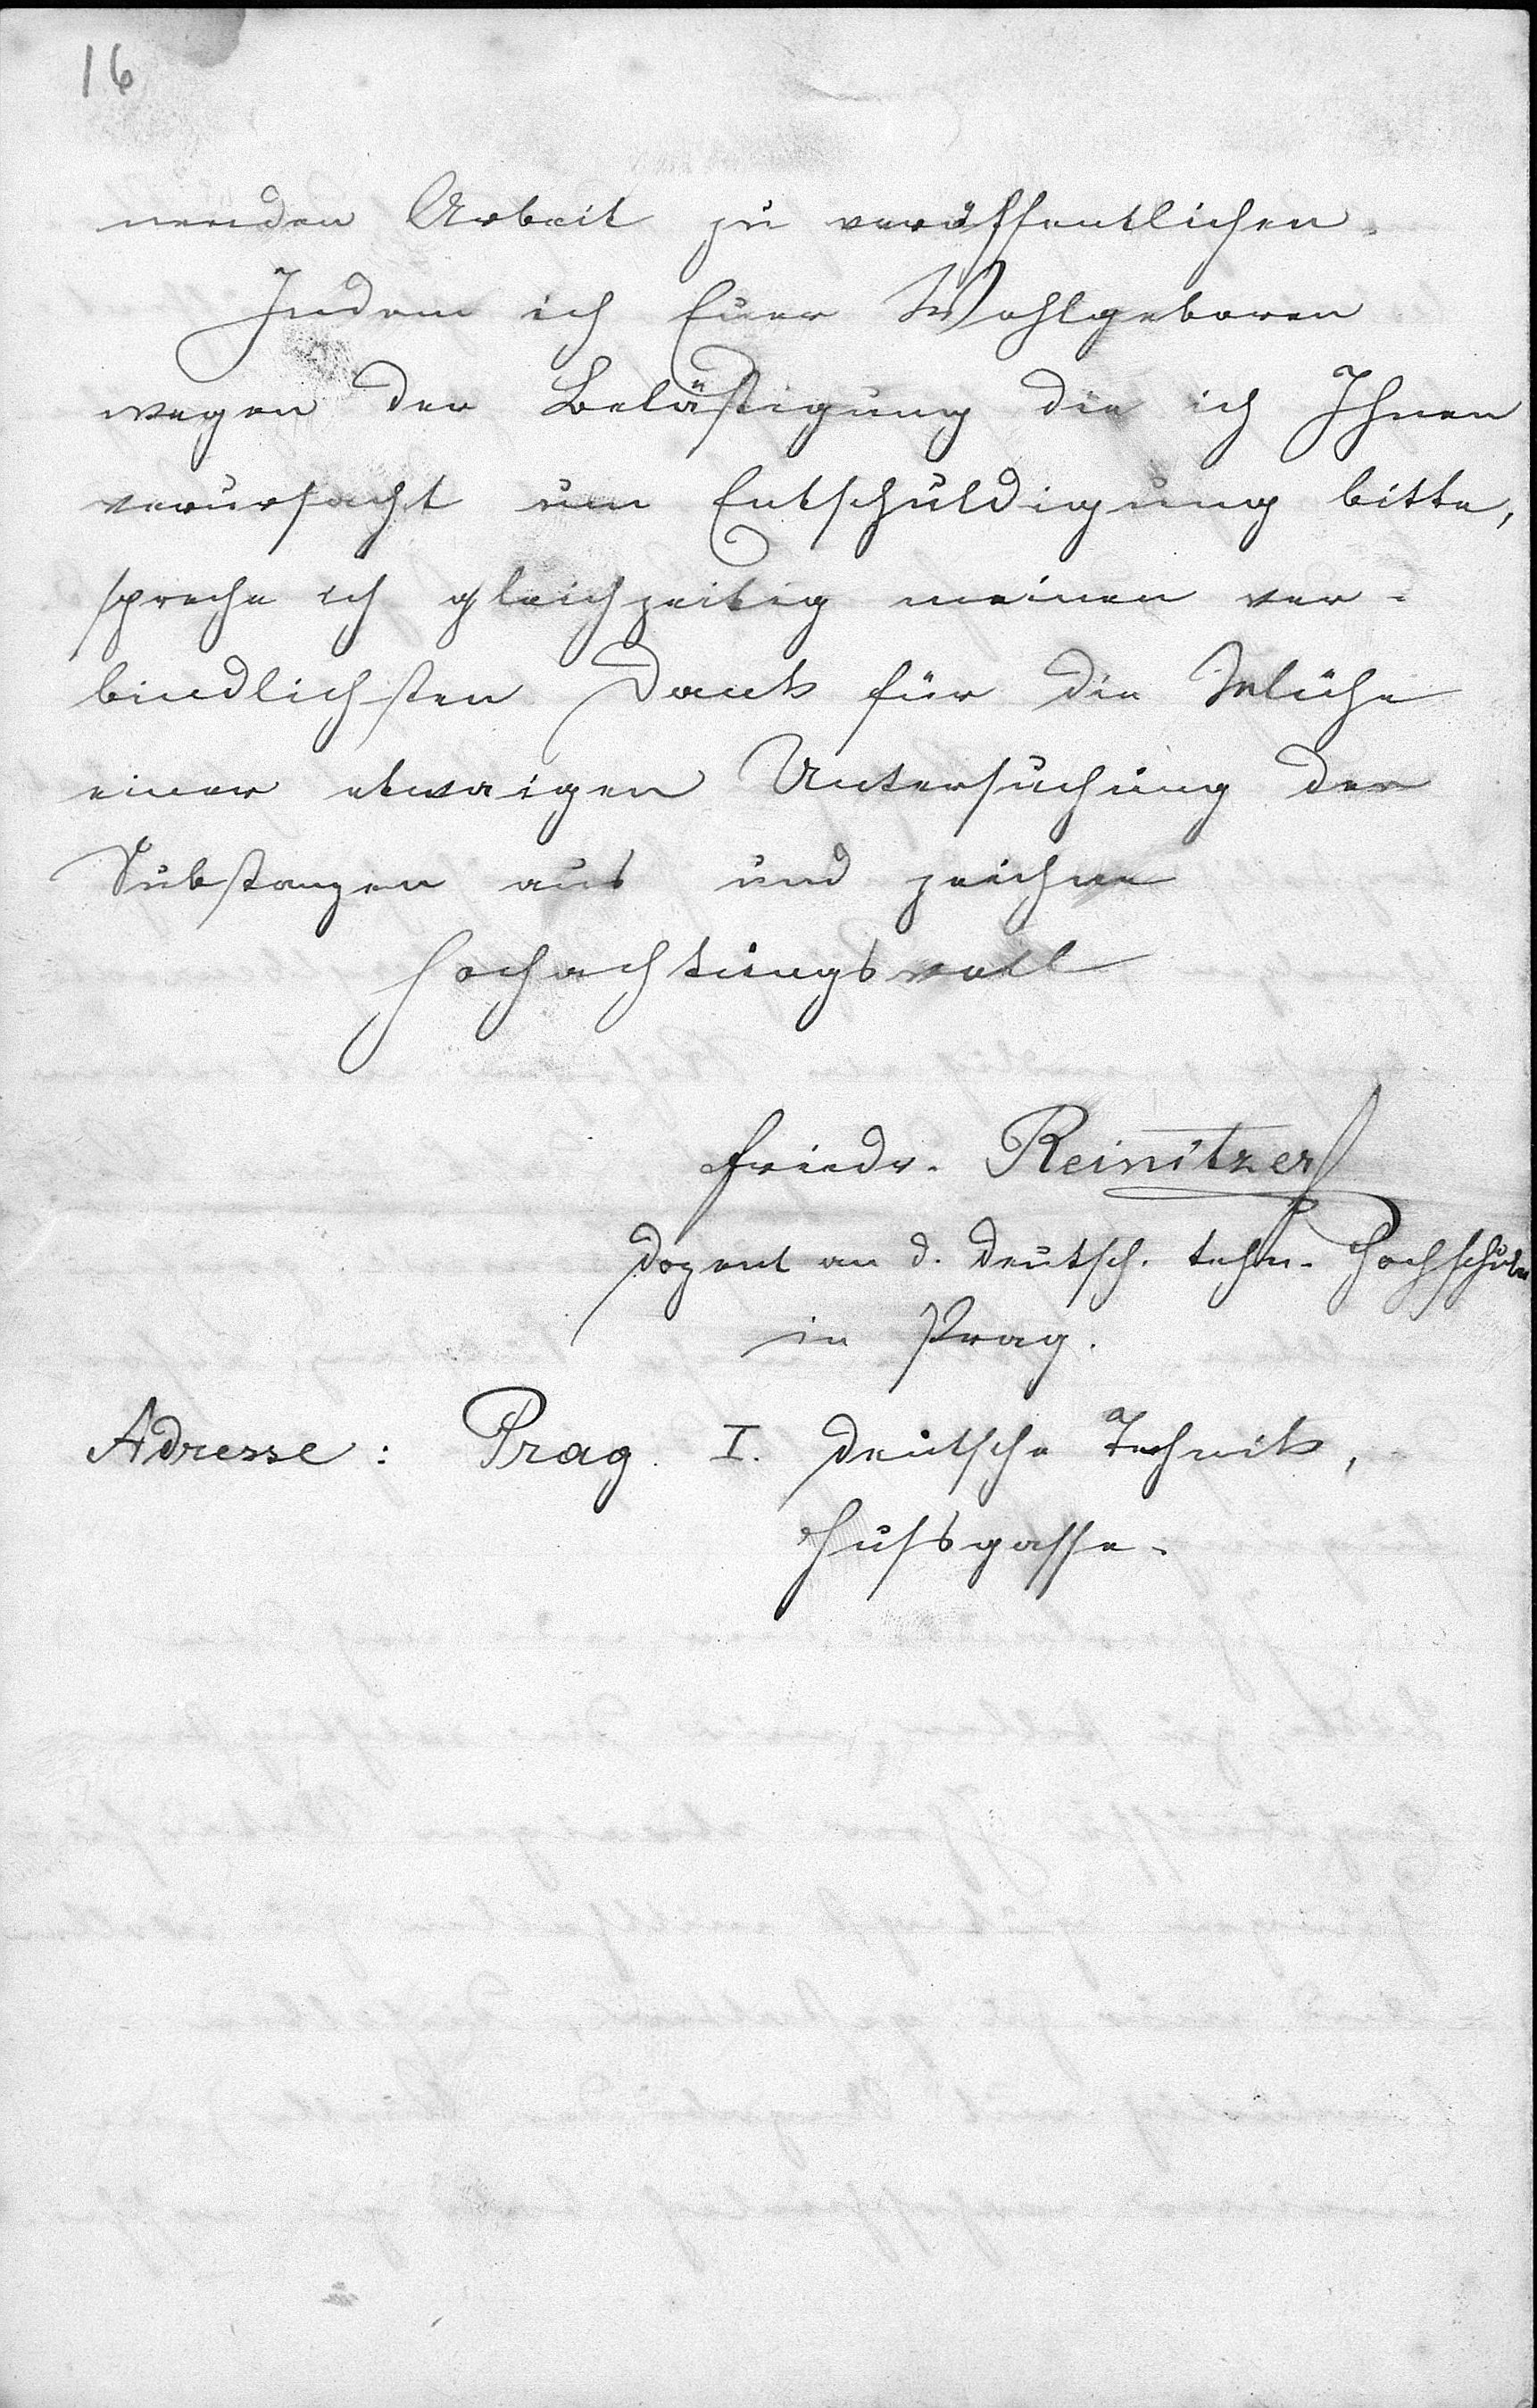 16
nenden Arbeit zu veröffentlichen.
Indem ich Euer Wohlgeboren
wegen der Belästigung die ich Ihnen
verursacht um Entschuldigung bitte,
spreche ich gleichzeitig meinen ver-
bindlichsten Dank für die Mühe
einer etwaigen Untersuchung der
Substanzen aus und zeichne
hochachtungsvoll
Friedr. Reinitzer
Dozent an d. deutsch. techn. Hochschule
in Prag.
Adresse: Prag. I. deutsche Technik,
Hussgasse.